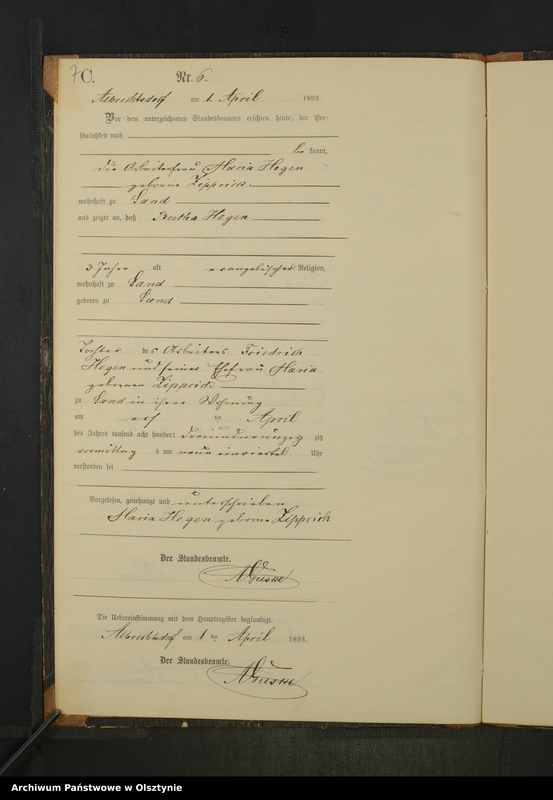 7 C. Nr. 6.
Albrechtsdorf am 1. April 1893.
Vor dem unterzeichneten Standesbeamten erschien heute, der Per-
sönlichkeit nach
be kannt,
die Arbeiterfrau Maria Hegen
geborne Zipprick
wohnhaft zu Sand
und zeigte an, daß Bertha Hegen
3 Jahre alt evangelischer Religion,
wohnhaft zu Sand
geboren zu Sand
Tochter des Arbeiters Friedrich
Hegen und seiner Ehefrau Maria
geborenen Zipprick
zu Sand in ihrer Wohnung
am ersten April
des Jahres tausend acht hundert dreiundneunzig zig
vormittag s um neun einviertel Uhr
verstorben sei
Vorgelesen, genehmigt und unterschrieben
Maria Hegen geborne Zipprick
Der Standesbeamte.
Die Uebereinstimmung mit dem Hauptregister beglaubigt.
Albrechtsdorf am 1 ten April 1893.
Der Standesbeamte.
Archiwum Państwowe w Olsztynie